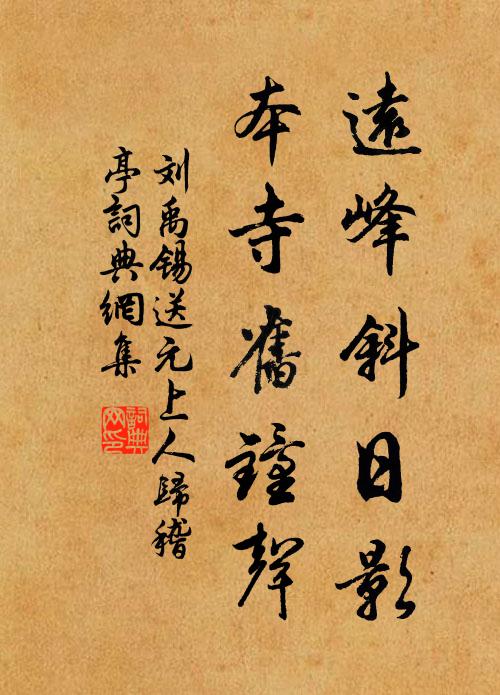 遠峰斜日影
本寺舊鐘聲
刘禹锡送元上人歸稽
亭詞典網集
詞典网印